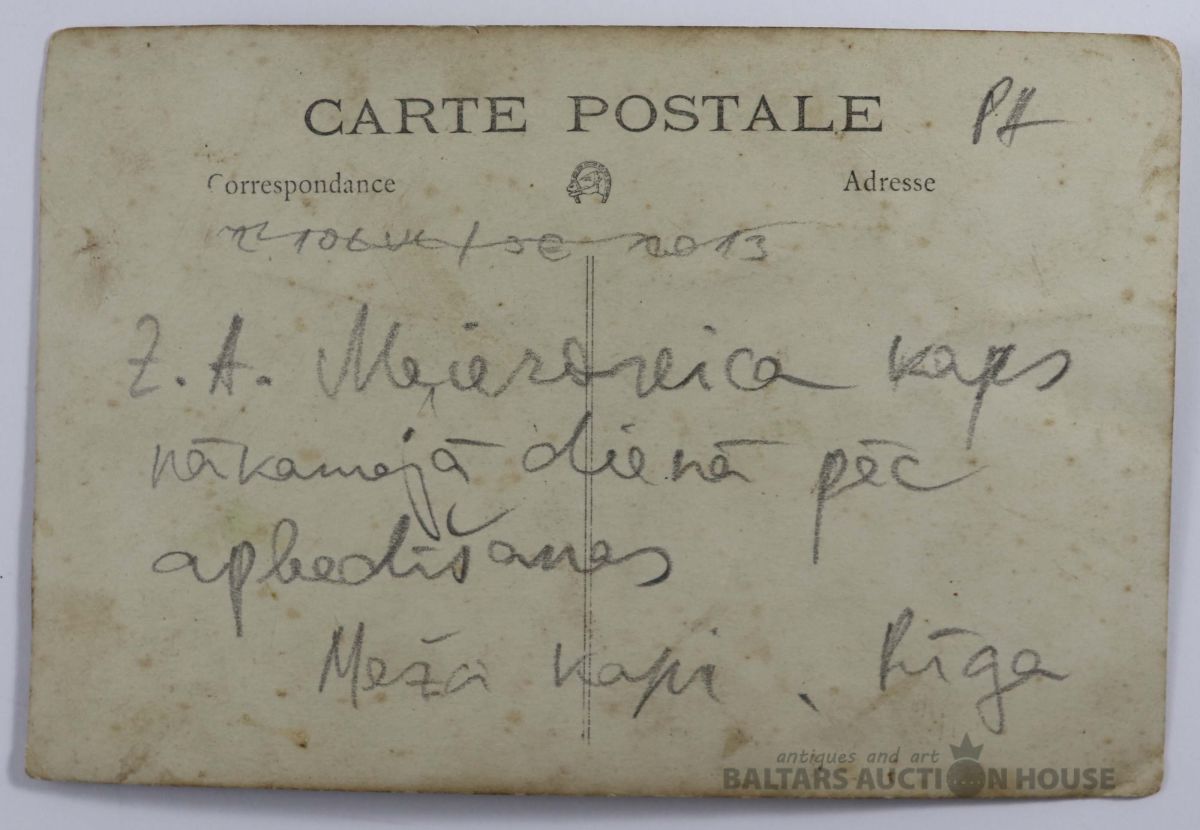 CARTE POSTALE PA
Correspondance Adresse
Z. A. Meierovica kaps
nākamajā dienā pēc
apbedīšanas
Meža kapi, Rīga
antiques and art
BALTARS AUCTION HOUSE